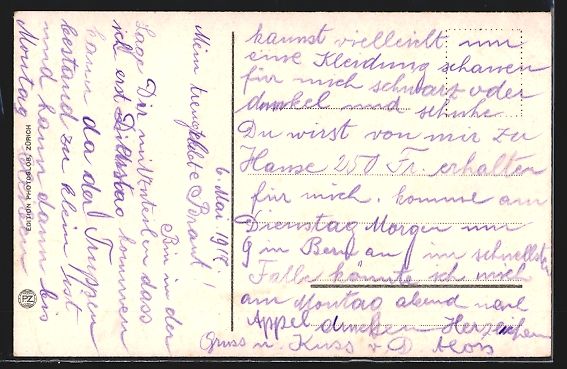 6. Mai 191
Mein
Bin in der
Lage Dir mitzuteilen dass
ich erst Dienstag kommen
kann da der Truppen
bestand zu klein ist
und kann dann bis
Montag
kannst vielleicht um
eine Kleidung schauen
für mich schwarz oder
dunkel und Schuhe
Du wirst von mir zu
Hause 250 Fr. erhalten
für mich. komme am
Dienstag Morgen um
9 in Bern an im schnellsten
Falle könnte ich mich
am Montag abend nach
Appel drucken Herzlichen
Gruss u. Kuss v. D. Alois
EDITION PHOTOGLOB, ZÜRICH
PZ